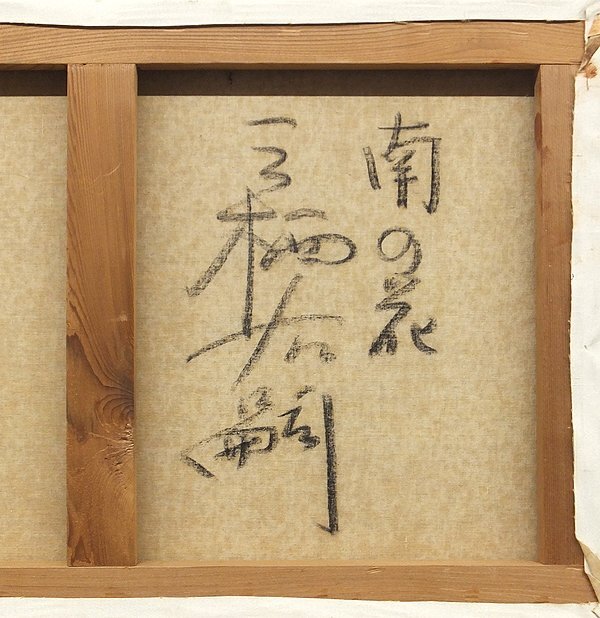 南の花
三栖右嗣